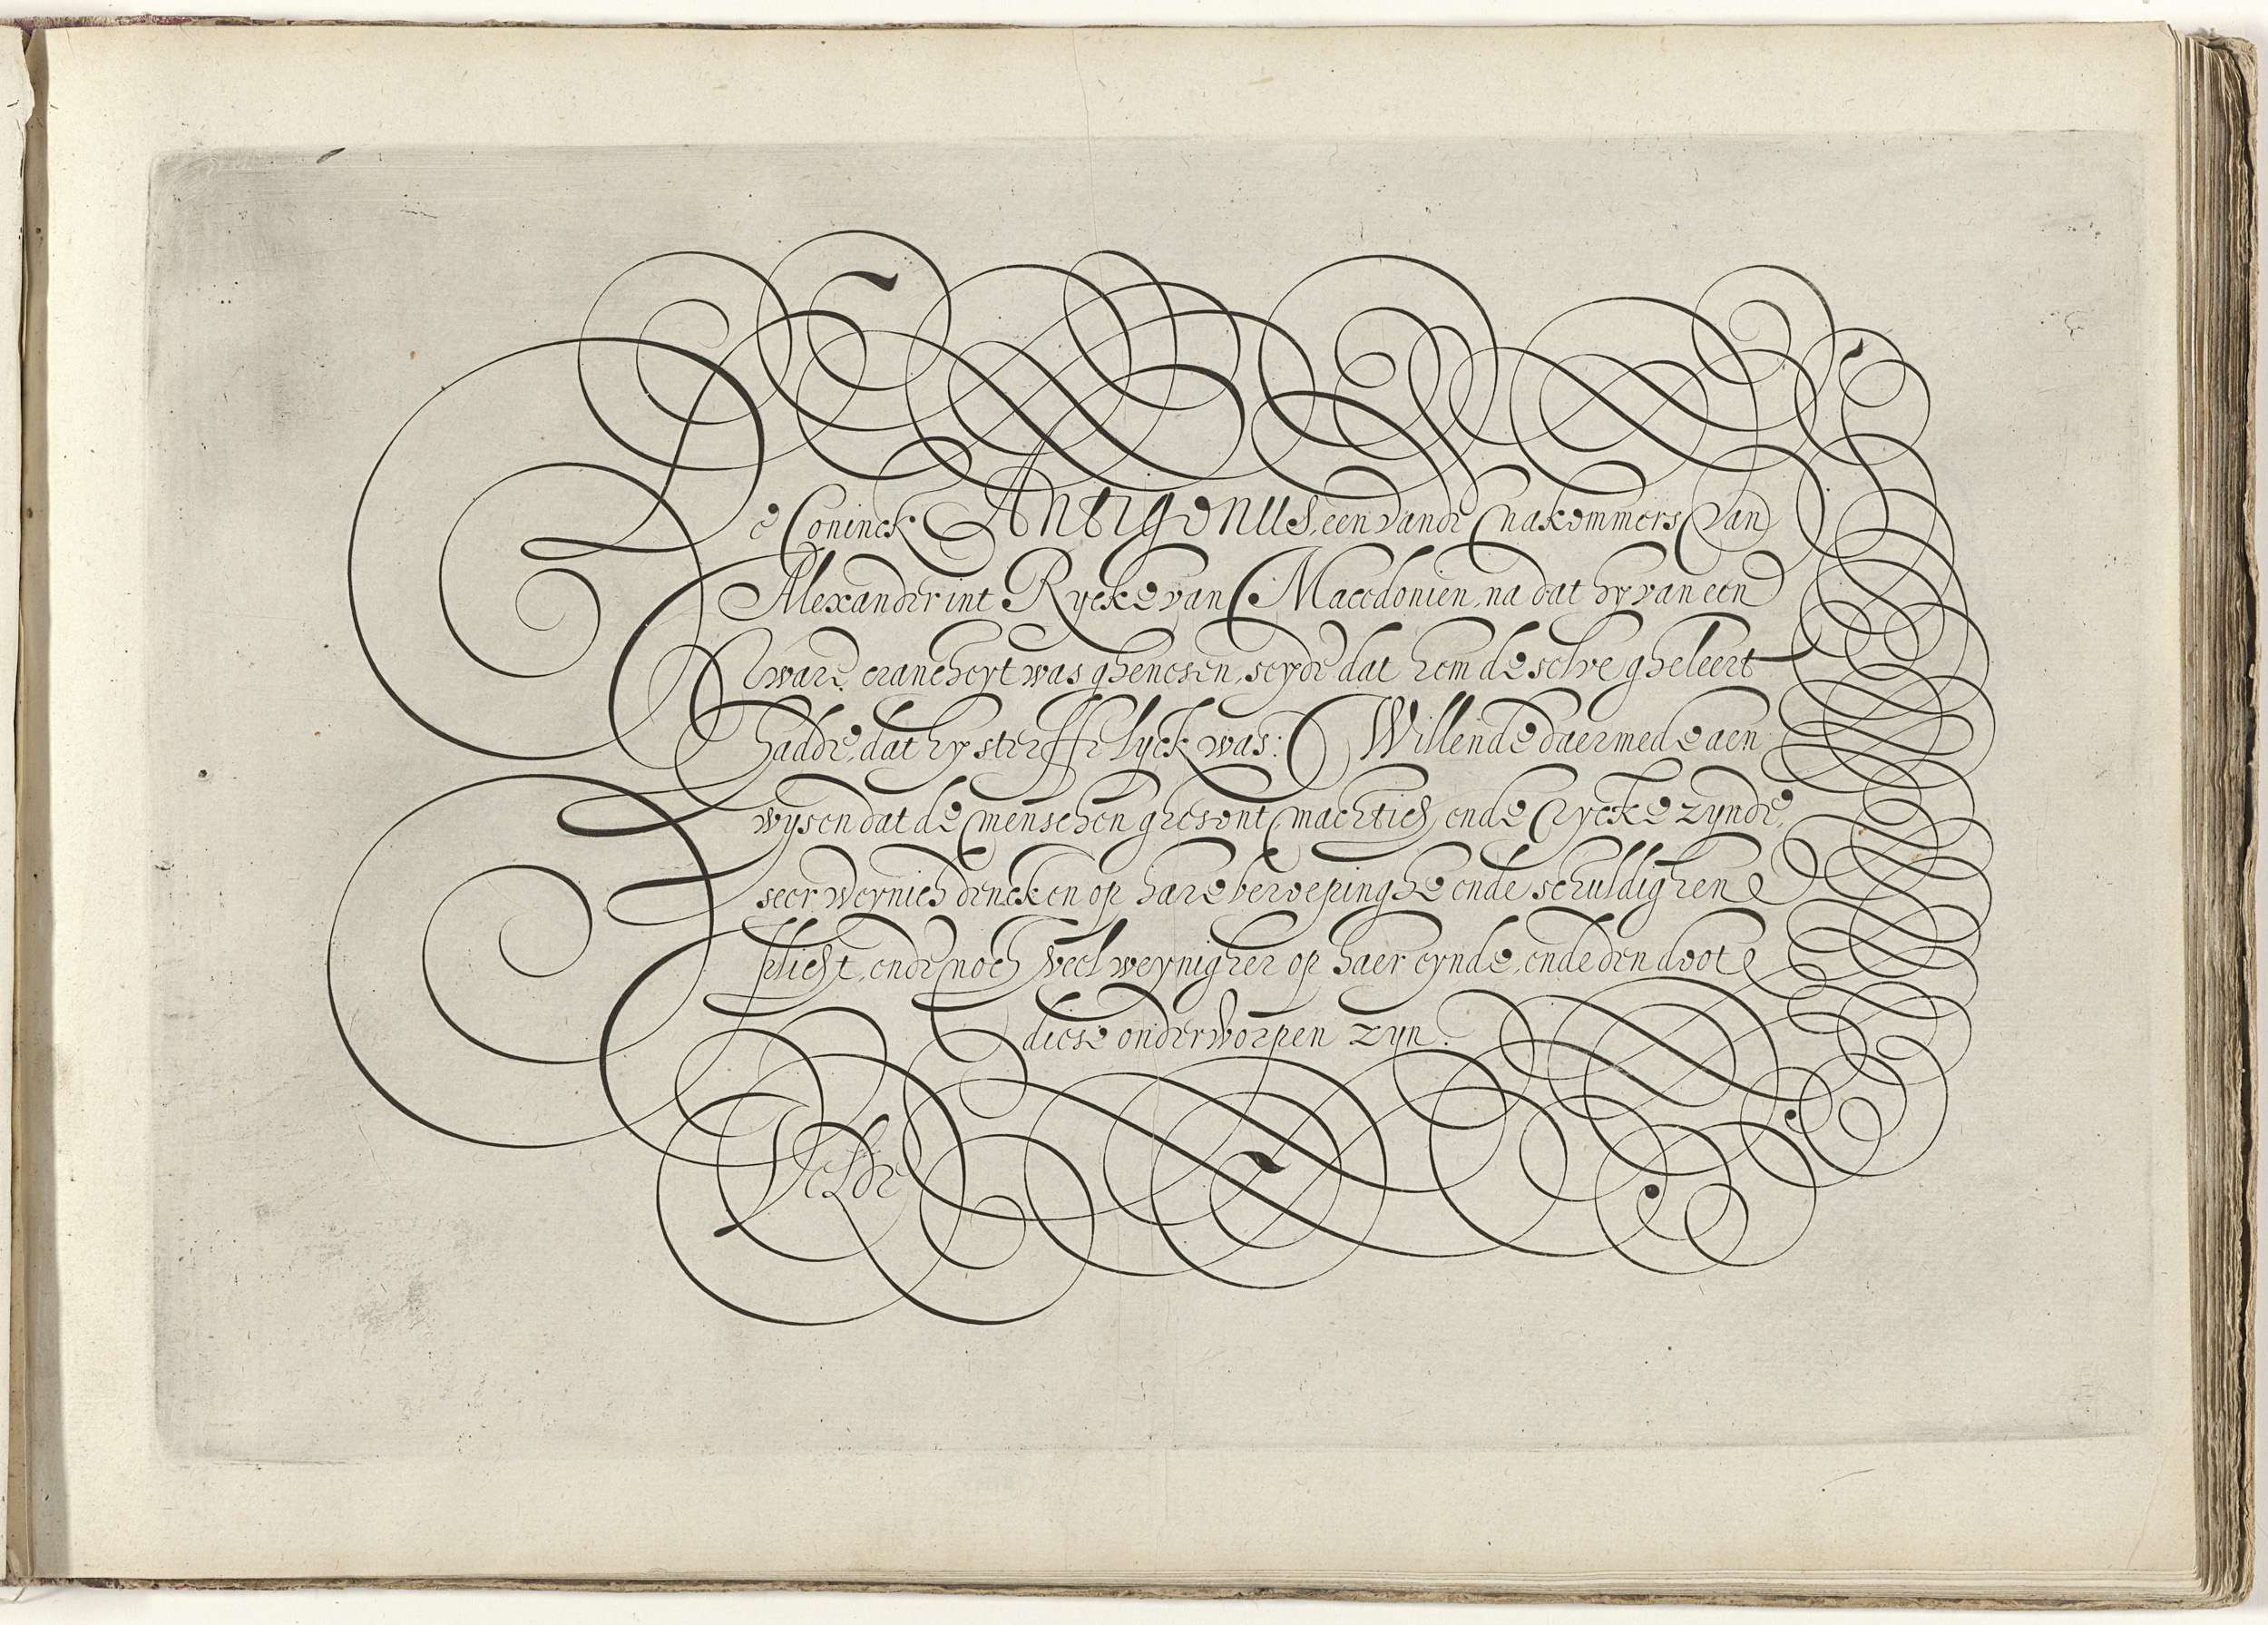 De Coninck Antigonus, een vande nakommers van
Alexander int Rycke van Macedonien, na dat hy van een
sware cranckheyt was ghenesen, seyde dat hem de selve gheleert
hadde, dat hy sterffelyck was: Willende daermede aen
wysen dat de menschen ghesont machtich ende rycke zynde,
seer weynich dencken op hare beroepinghe ende schuldighen
plicht, ende noch veel weynigher op haer eynde, ende den doot
diese onderworpen zyn.
Velde